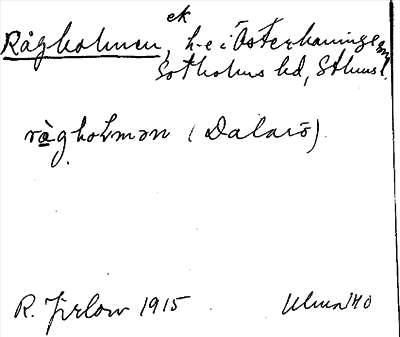 ek
Rågholmen, h-e i Österhaninge sn,
Sotholms hd, Sthms l.
rågholmən (Dalarö).
R. Jirlow 1915